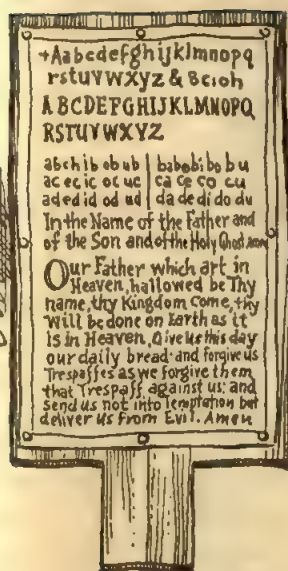 +Aabcdefghijklmnopq
rstuvwxyz & 8cioh
ABCDEFGHIJKLMNOPQ
RSTUVWXYZ
abchib ob ub | babobibo bu
ac ec ic oc uc | ca ce co cu
ad ed id od ud | da de di do du
In the Name of the Father and
of the Son and of the Holy Ghost Amen
Our Father which art in
Heaven, hallowed be Thy
name, thy Kingdom come, thy
will be done on Earth as it
is in Heaven, Give us this day
our daily bread and forgive us
Trespasses as we forgive them
that Trespass against us; and
Send us not into Temptation but
deliver us from Evil. Amen